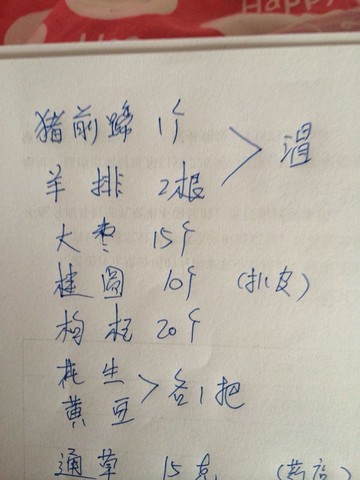 Happy
猪前蹄 1个 > 温
羊排 2根
大枣 15个
桂圆 10个 (扒皮)
枸杞 20个
花生 > 各1把
黄豆
通草 15克 (药店)